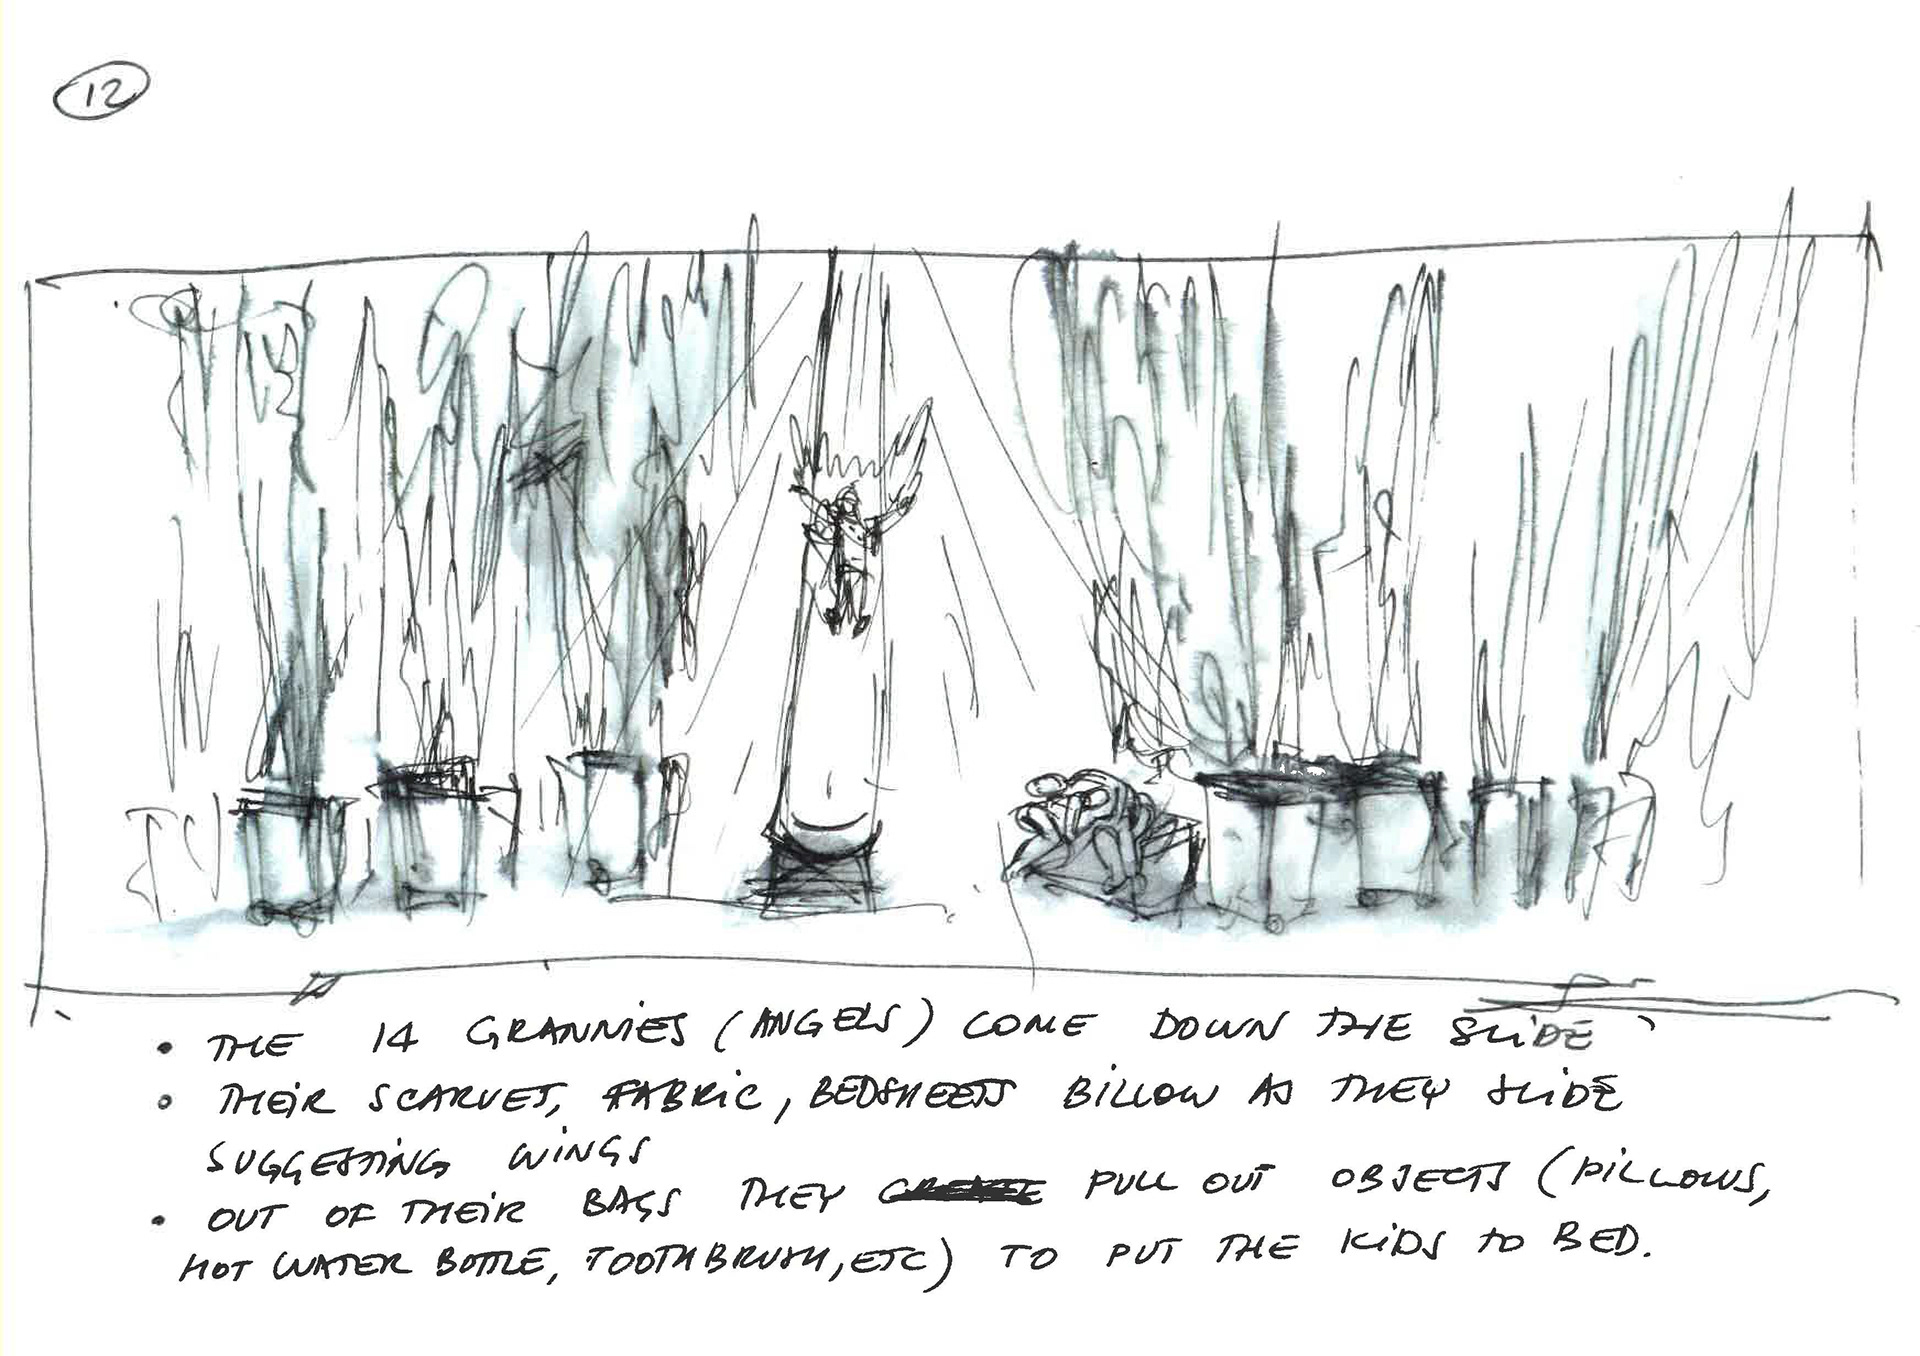 12
• THE 14 GRANNIES (ANGELS) COME DOWN THE SLIDE
• THEIR SCARVES, FABRIC, BEDSHEETS BILLOW AS THEY SLIDE
SUGGESTING WINGS
• OUT OF THEIR BAGS THEY PULL OUT OBJECTS (PILLOWS,
HOT WATER BOTTLE, TOOTHBRUSH, ETC) TO PUT THE KIDS TO BED.